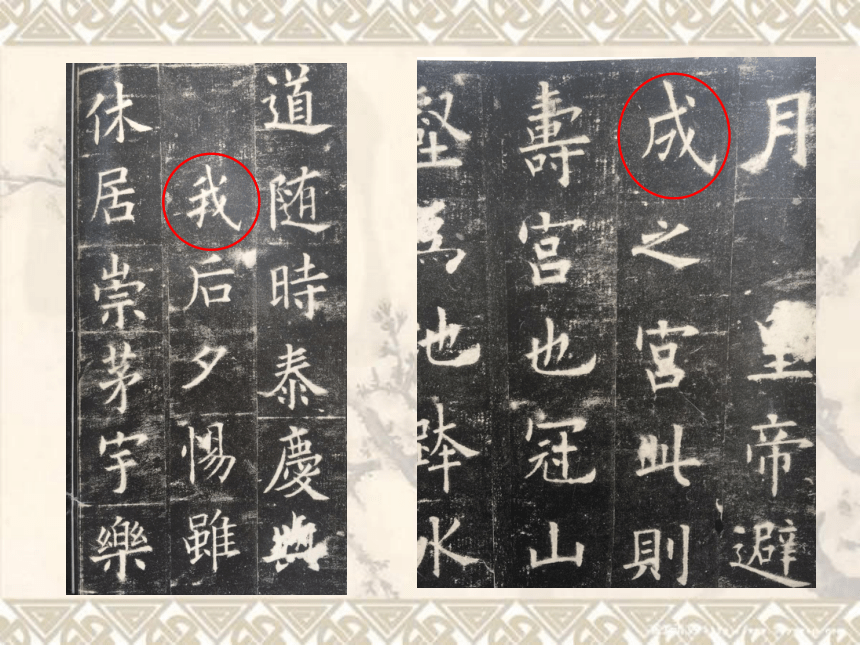 月皇帝避
成之宮此則
壽宮也冠山
壑為池跨水
道随時泰慶與
我后夕惕雖
休居崇茅宇樂